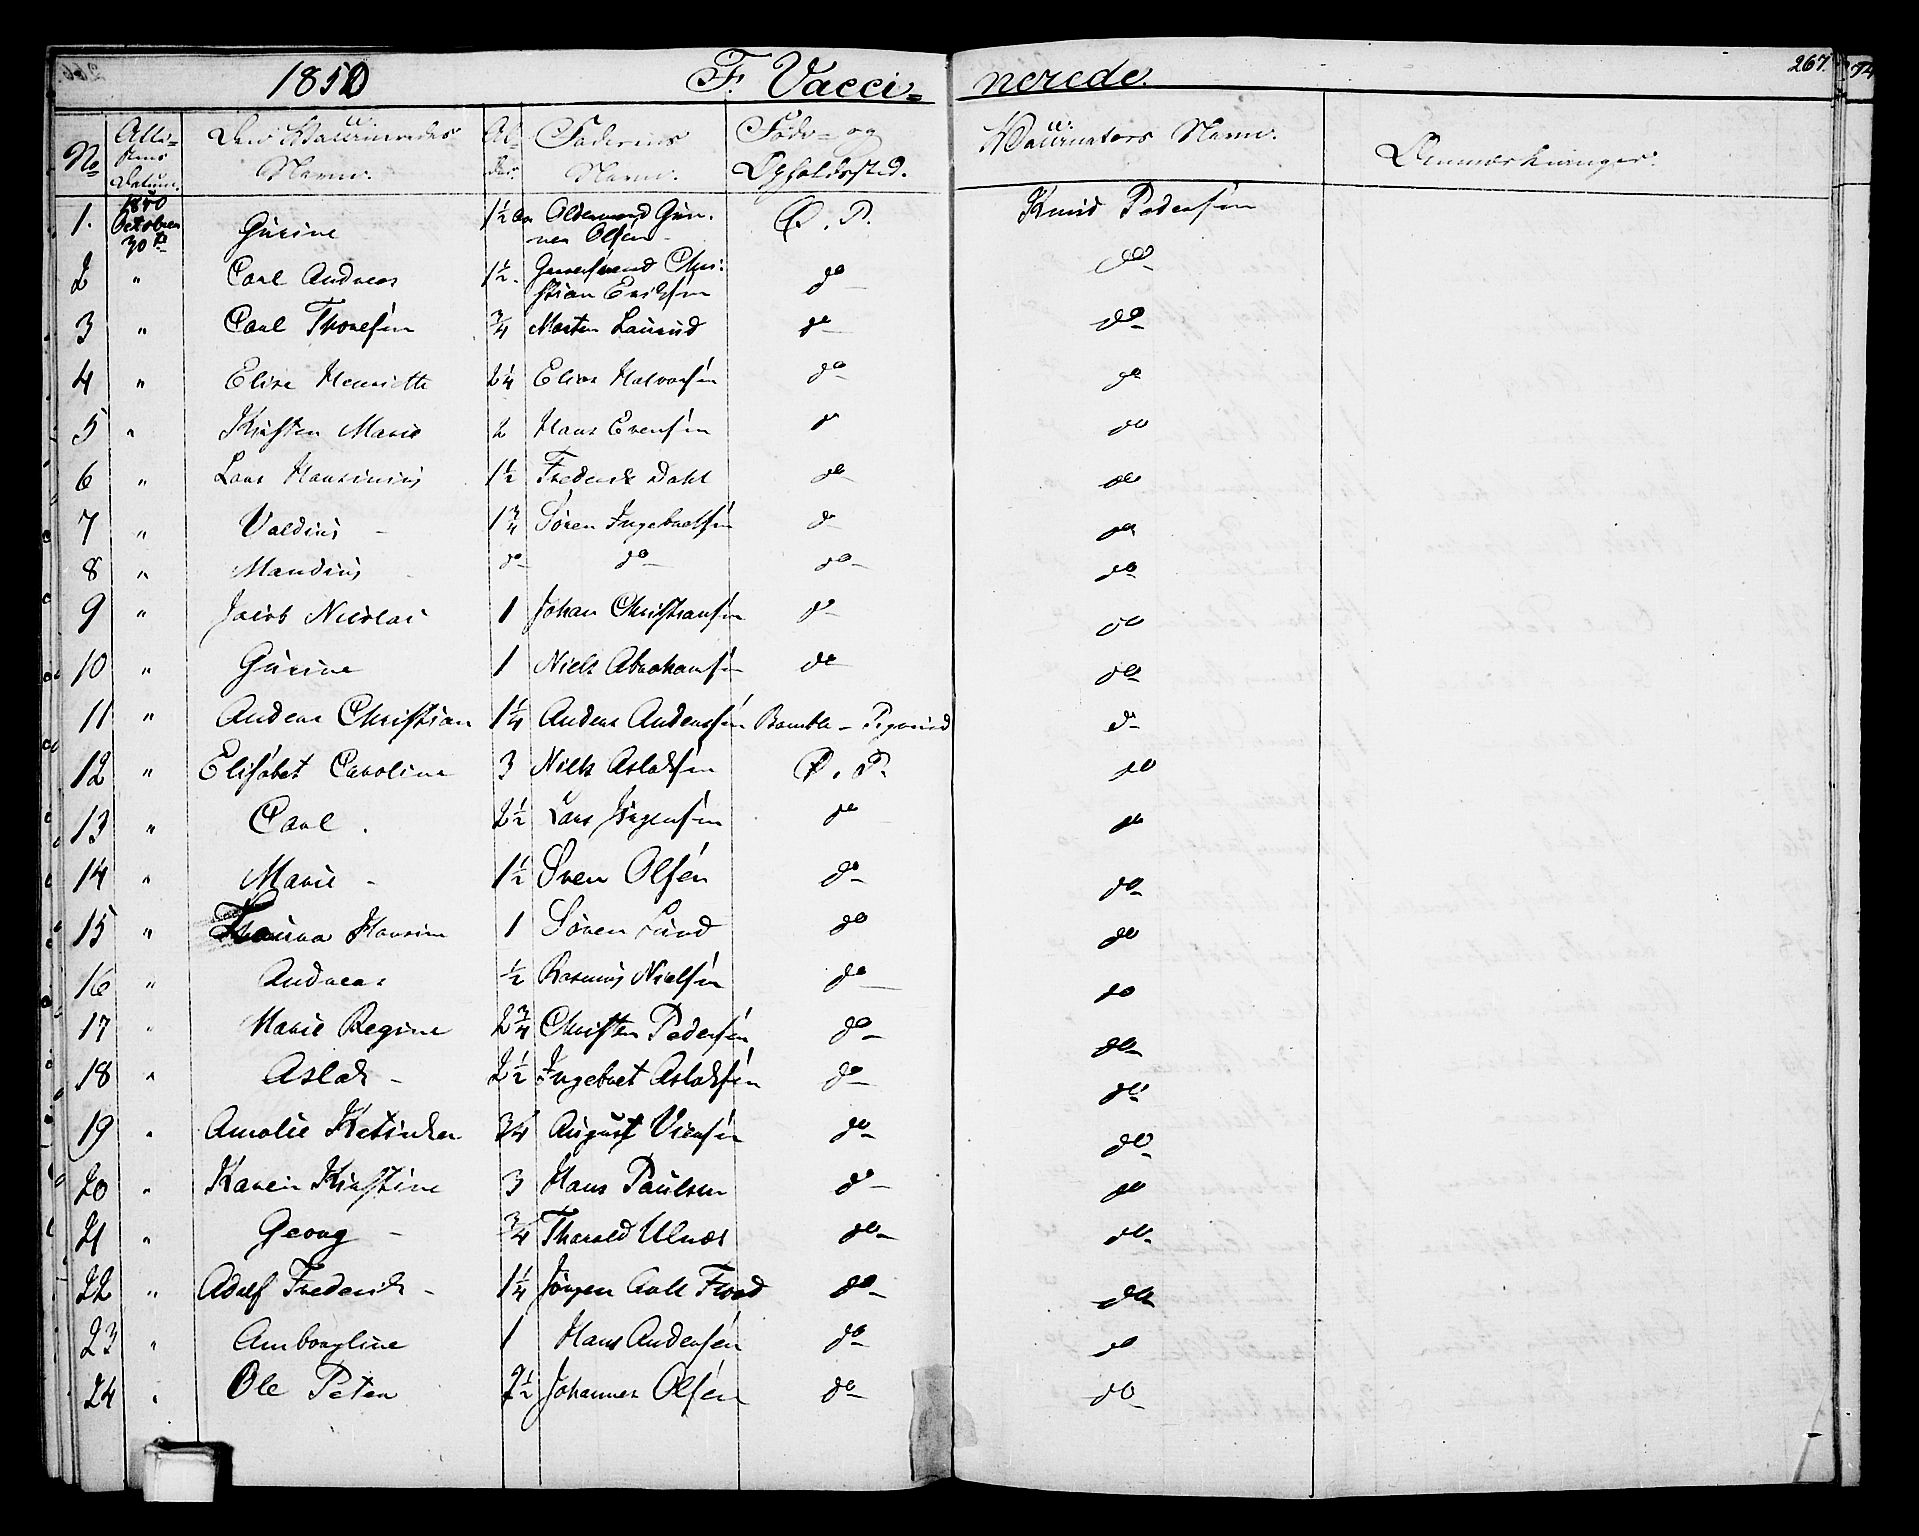 1850 F. Vacci= nerede. 267.
No Atte= stens Datum. Den Vaccineredes Navn. Al= der. Faderens Navn. Føde= og Opholdssted. Vaccinators Navn. Anmærkninger.
1. 1850 October 30te Gurine 1½ Gun= ner Olsen P. P. Knud Pedersen
2 " Carl Andreas 1½ Chri= stian Eriksen do do
3 " Carl Thoresen ¾ Morten Laurud do do
4 " Elise Henriette 2¼ Elias Halvorsen do do
5 " Kirsten Marie 2 Hans Evensen do do
6 " Lars Hansinius 1½ Frederik Dahl do do
7 " Valdius 1¾ Søren Ingebretsen do do
8 " Mandius do do do do
9 " Jacob Nicolai 1 Johan Christiansen do do
10 " Gurine 1 Niels Abrahamsen do do
11 " Anders Christian 1¼ Anders Anderssen Bamble - do
12 " Elisabet Caroline 3 Niels Aslaksen P. P. do
13 " Carl 2½ Lars Jørgensen do do
14 " Marie 1½ Sven Olsen do do
15 " Hansine 1 Søren Lund do do
16 " Andreas ½ Rasmus Nielsen do do
17 " Marie Regine 2¾ Christen Pedersen do do
18 " Aslak 2½ Ingebret Aslaksen do do
19 " Amalie ¾ August do do
20 " Karen Kirstine 3 Hans Paulsen do do
21 " Georg ¾ Tharald Ulnæs do do
22 " Adolf Frederik 1¼ Jørgen Aall Flood do do
23 " Amborgline 1 Hans Andersen do do
24 " Ole Peter 2½ Johannes Olsen do do